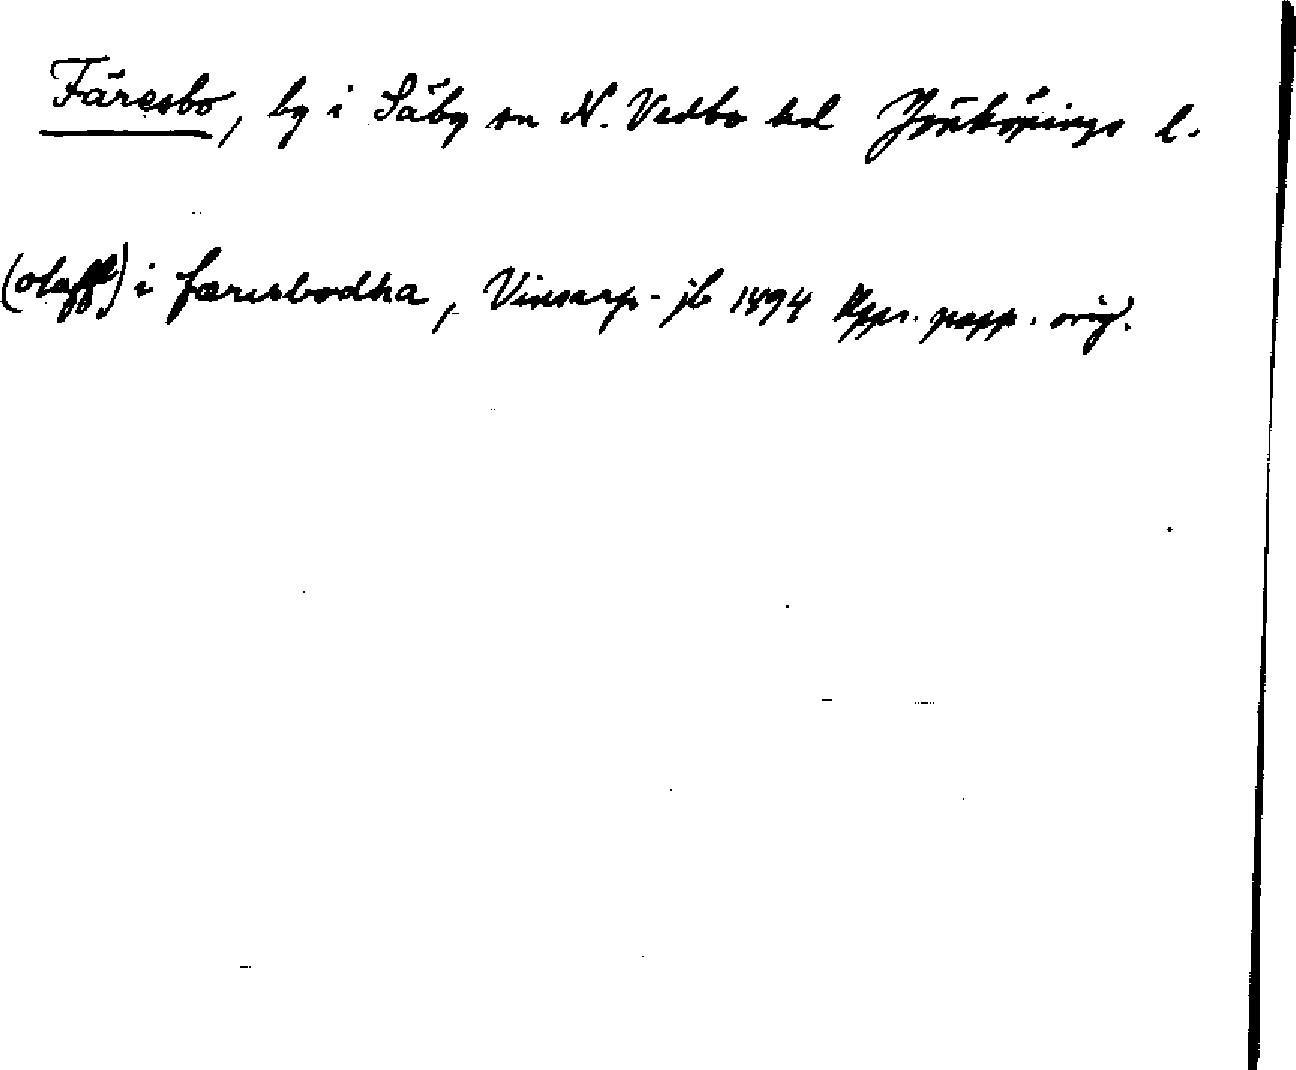 Färesbo, by i Säby sn N. Vedbo hd Jönköpings l.
(olaff) i færisbodha, Vinsarp-jb 1494 Kps. papp. orig.